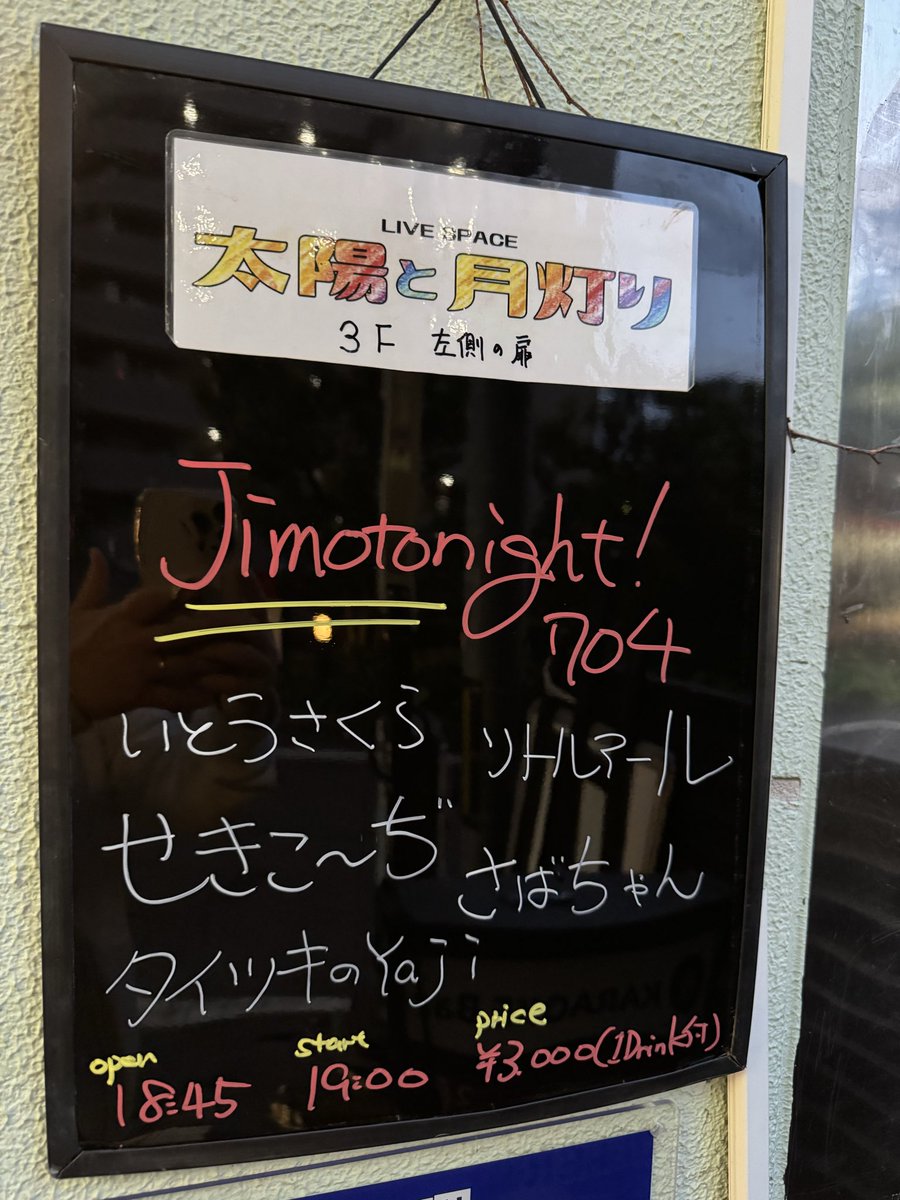 LIVE SPACE
太陽と月灯り
3F 左側の扉
Jimotonight!
704
いとうさくら リトルアール
せきこ～ぢ さばちゃん
タイツキのYaji
open start price
18:45 19:00 ¥3.000(1Drink付)